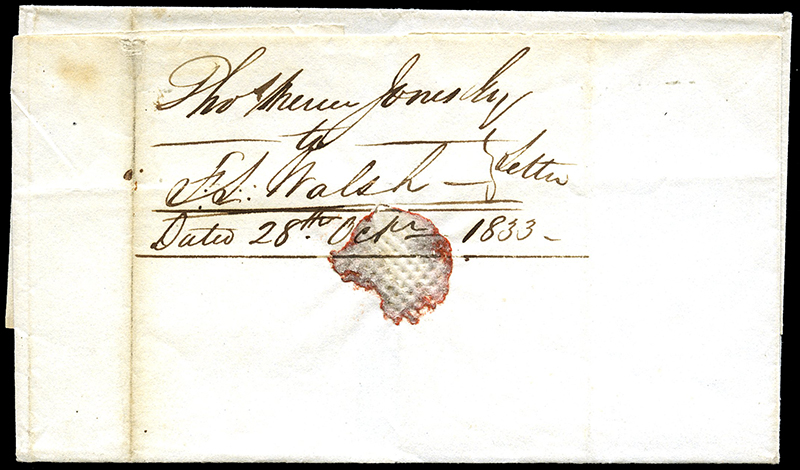 Thos Jones Esqr
to
F. L. Walsh — } Letter
Dated 28th Octr 1833 —